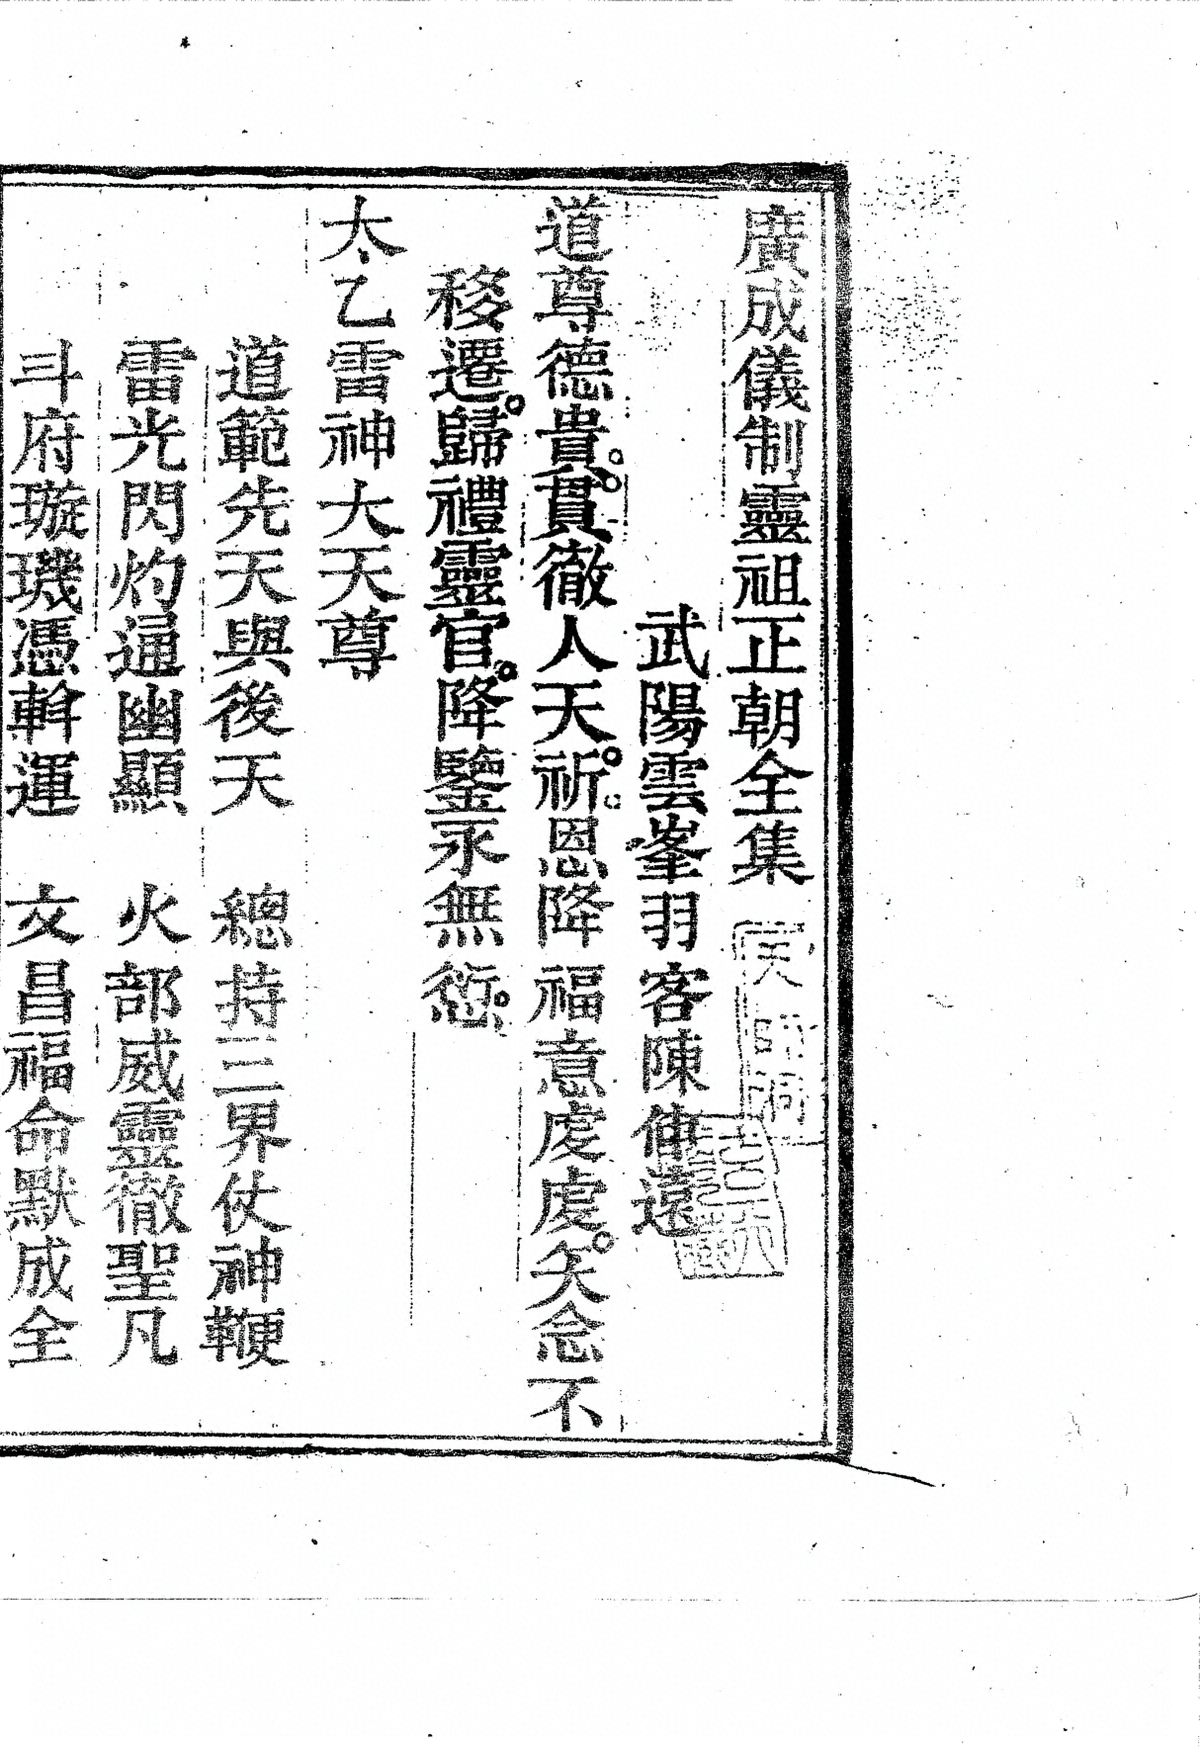 廣成儀制靈祖正朝全集
武陽雲峯羽客陳仲遠
道尊德貴。貫徹人天。祈恩降福意虔虔。矢念不
移遷。歸禮靈官。降鑒永無愆。
太乙雷神大天尊
道範先天與後天　總持三界仗神鞭
雷光閃灼通幽顯　火部威靈徹聖凡
斗府璇璣憑斡運　文昌福命默成全
天師洞